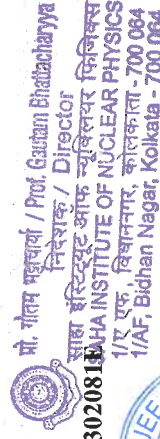 प्रो. गौतम भट्टाचार्या / Prof. Gautam Bhattacharyya
निदेशक / Director
साहा इंस्टिट्यूट ऑफ न्यूक्लियर फिजिक्स
SAHA INSTITUTE OF NUCLEAR PHYSICS
1/ए एफ, विधाननगर, कोलकाता - 700 064
1/AF, Bidhan Nagar, Kolkata - 700 064
302081E